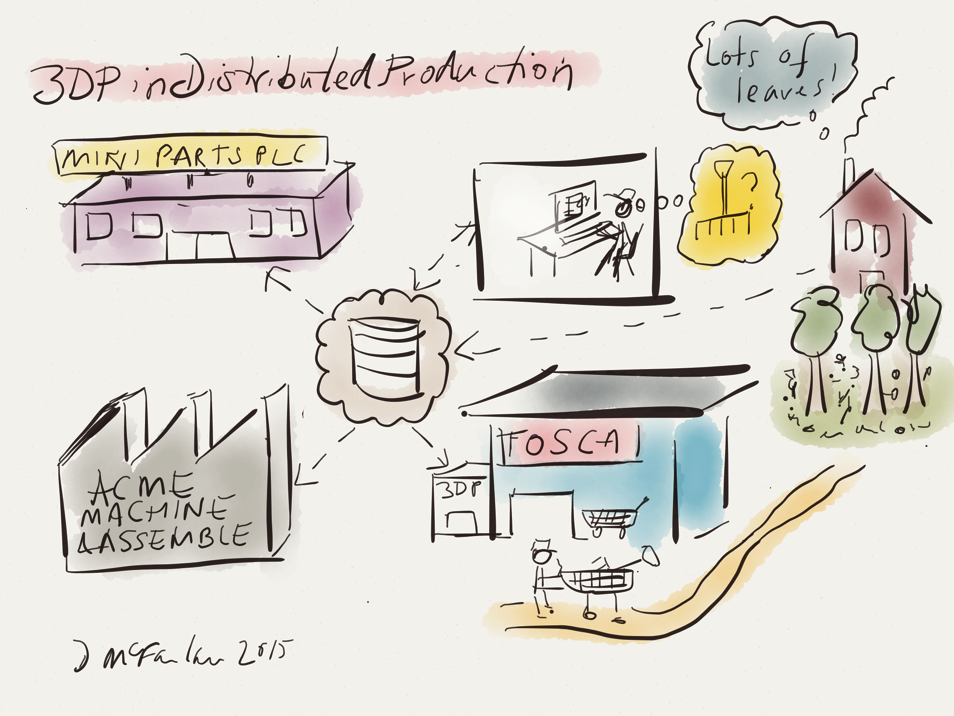 3DP in Distributed Production
Lots of
leaves!
MINI PARTS PLC
?
FOSCA
3DP
ACME
MACHINE
&ASSEMBLE
D McFarlane 2015